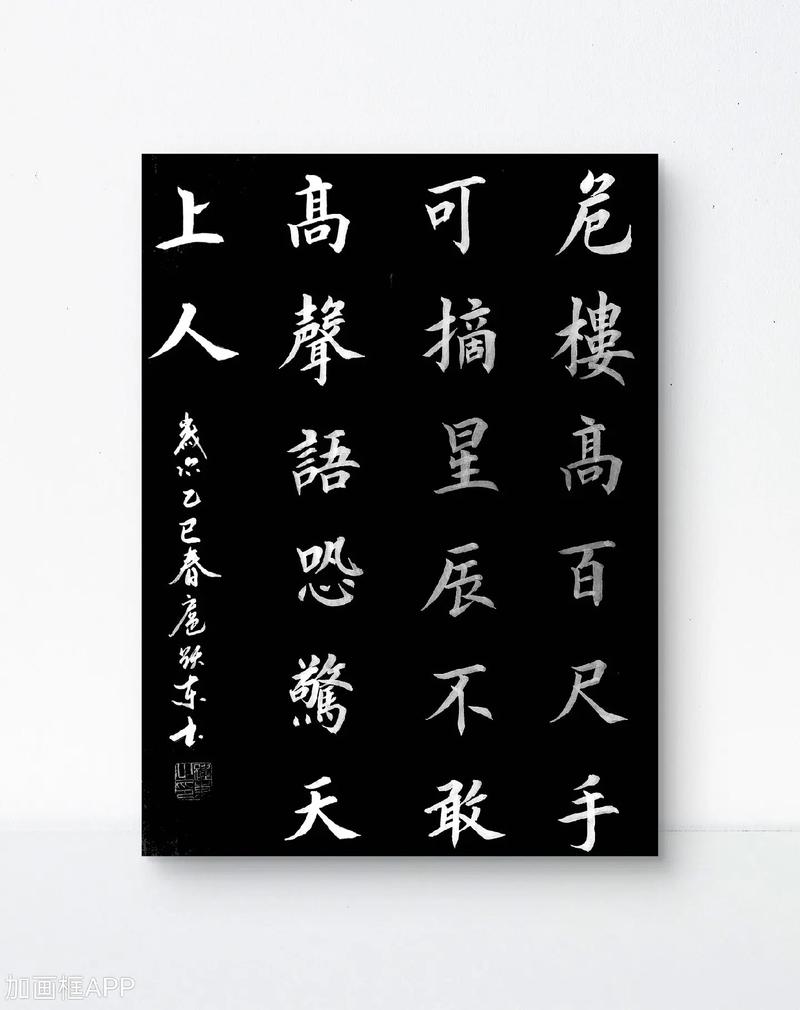 危樓高百尺手
可摘星辰不敢
高聲語恐驚天
上人
歲次乙巳春扈躍東书
加画框APP